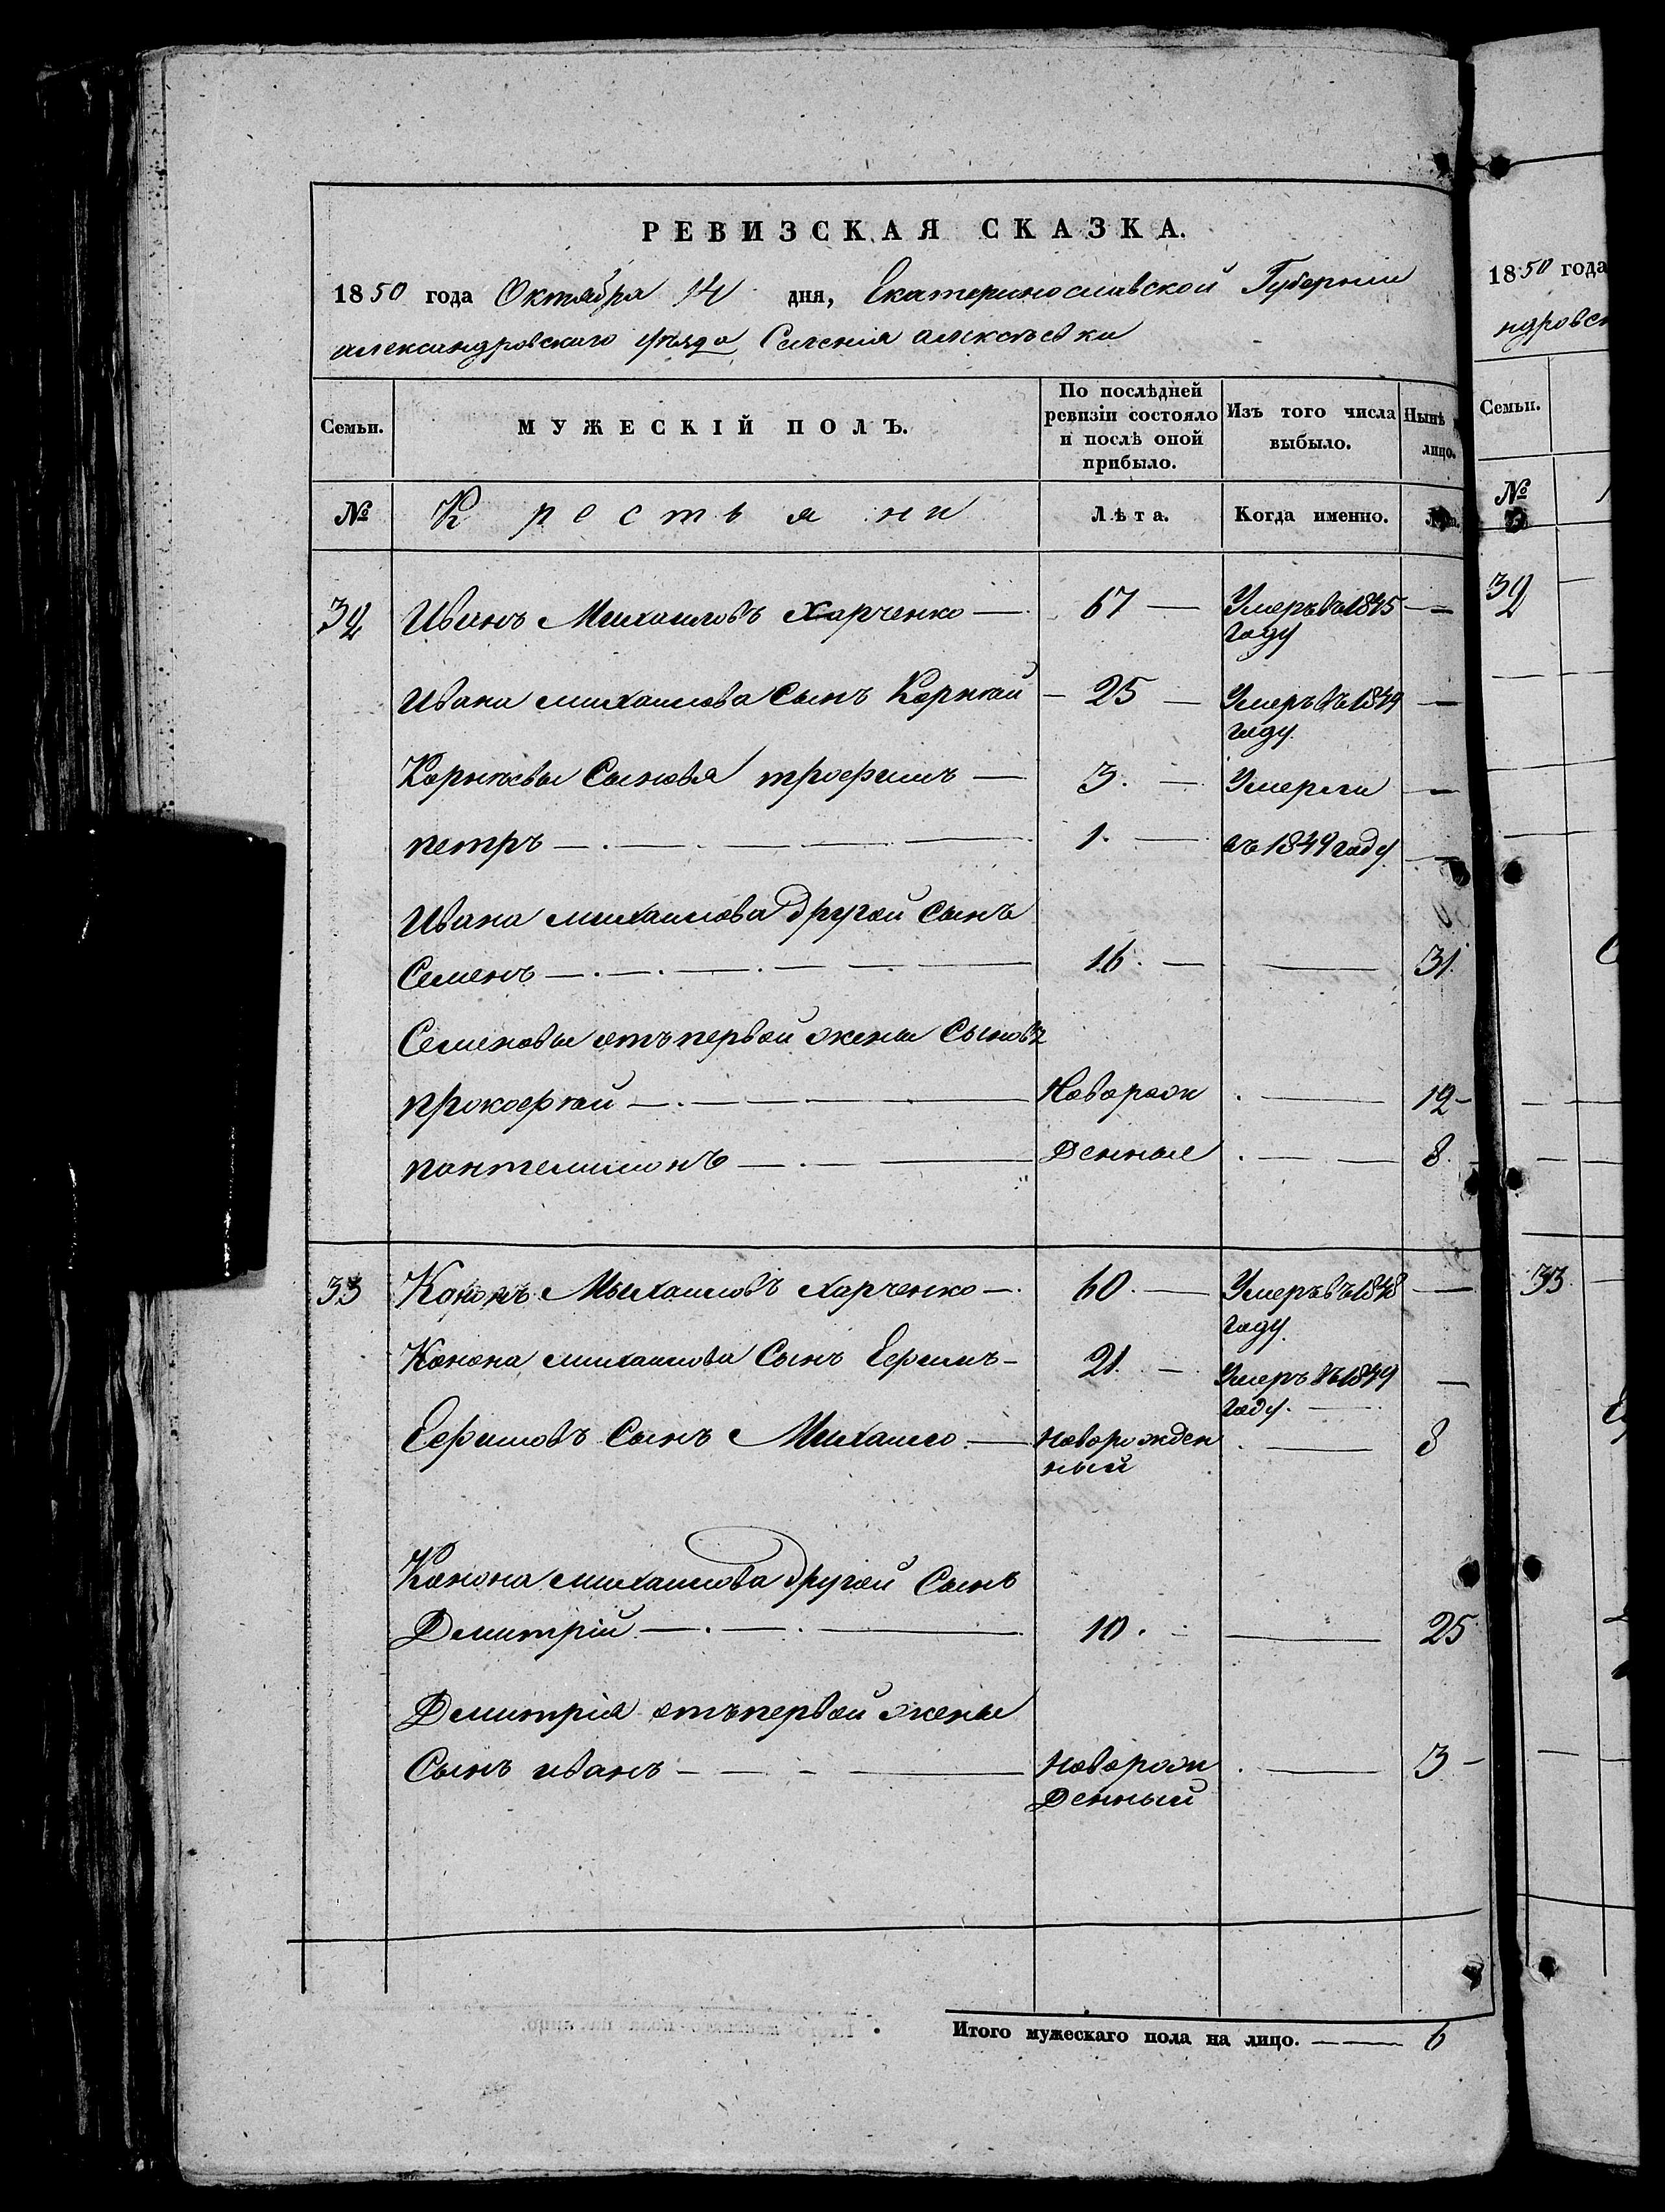 РЕВИЗСКАЯ СКАЗКА.
1850 года Октября 14 дня, Екатеринославской Губернии
александровского уѣзда Селения алексѣевки
Семьи.
МУЖЕСКІЙ ПОЛЪ.
По послѣдней ревизіи состояло и послѣ оной прибыло.
Изъ того числа выбыло.
Нынѣ
лицо.
№
Крестьяни
Лѣта.
Когда именно.
32 Иванъ Михаиловъ Харченко — 67 — Умеръ въ 1845 —
году
Ивана михаилова Сынъ Корнѣй — 25 — Умеръ въ 1849 —
году
Корнѣевы Сыновья трофимъ — 3. — Умерли —
петръ — 1. — въ 1849 году —
Ивана михаилова другой Сынъ
Семенъ — 16. — — 31.
Семеновы отъ первой жены Сыновья
прокофѣй — Поворож — 12 —
пантелимонъ — Денные — 8.
33 Кононъ Михаиловъ харченко — 60. — Умеръ въ 1848 —
году
Конона михаилова Сынъ Ефимъ — 21. — Умеръ въ 1849 —
году. —
Ефимовъ Сынъ Михаило. — новорожден — 8
ный
Конона михаилова другой Сынъ
Дмитрій — 10. — — 25
Дмитрія отъ первой жены
Сынъ иванъ — новорож — 3 —
Денный
Итого мужескаго пола на лицо. — 6
1850 года
ндровск
Семьи.
№
32
33